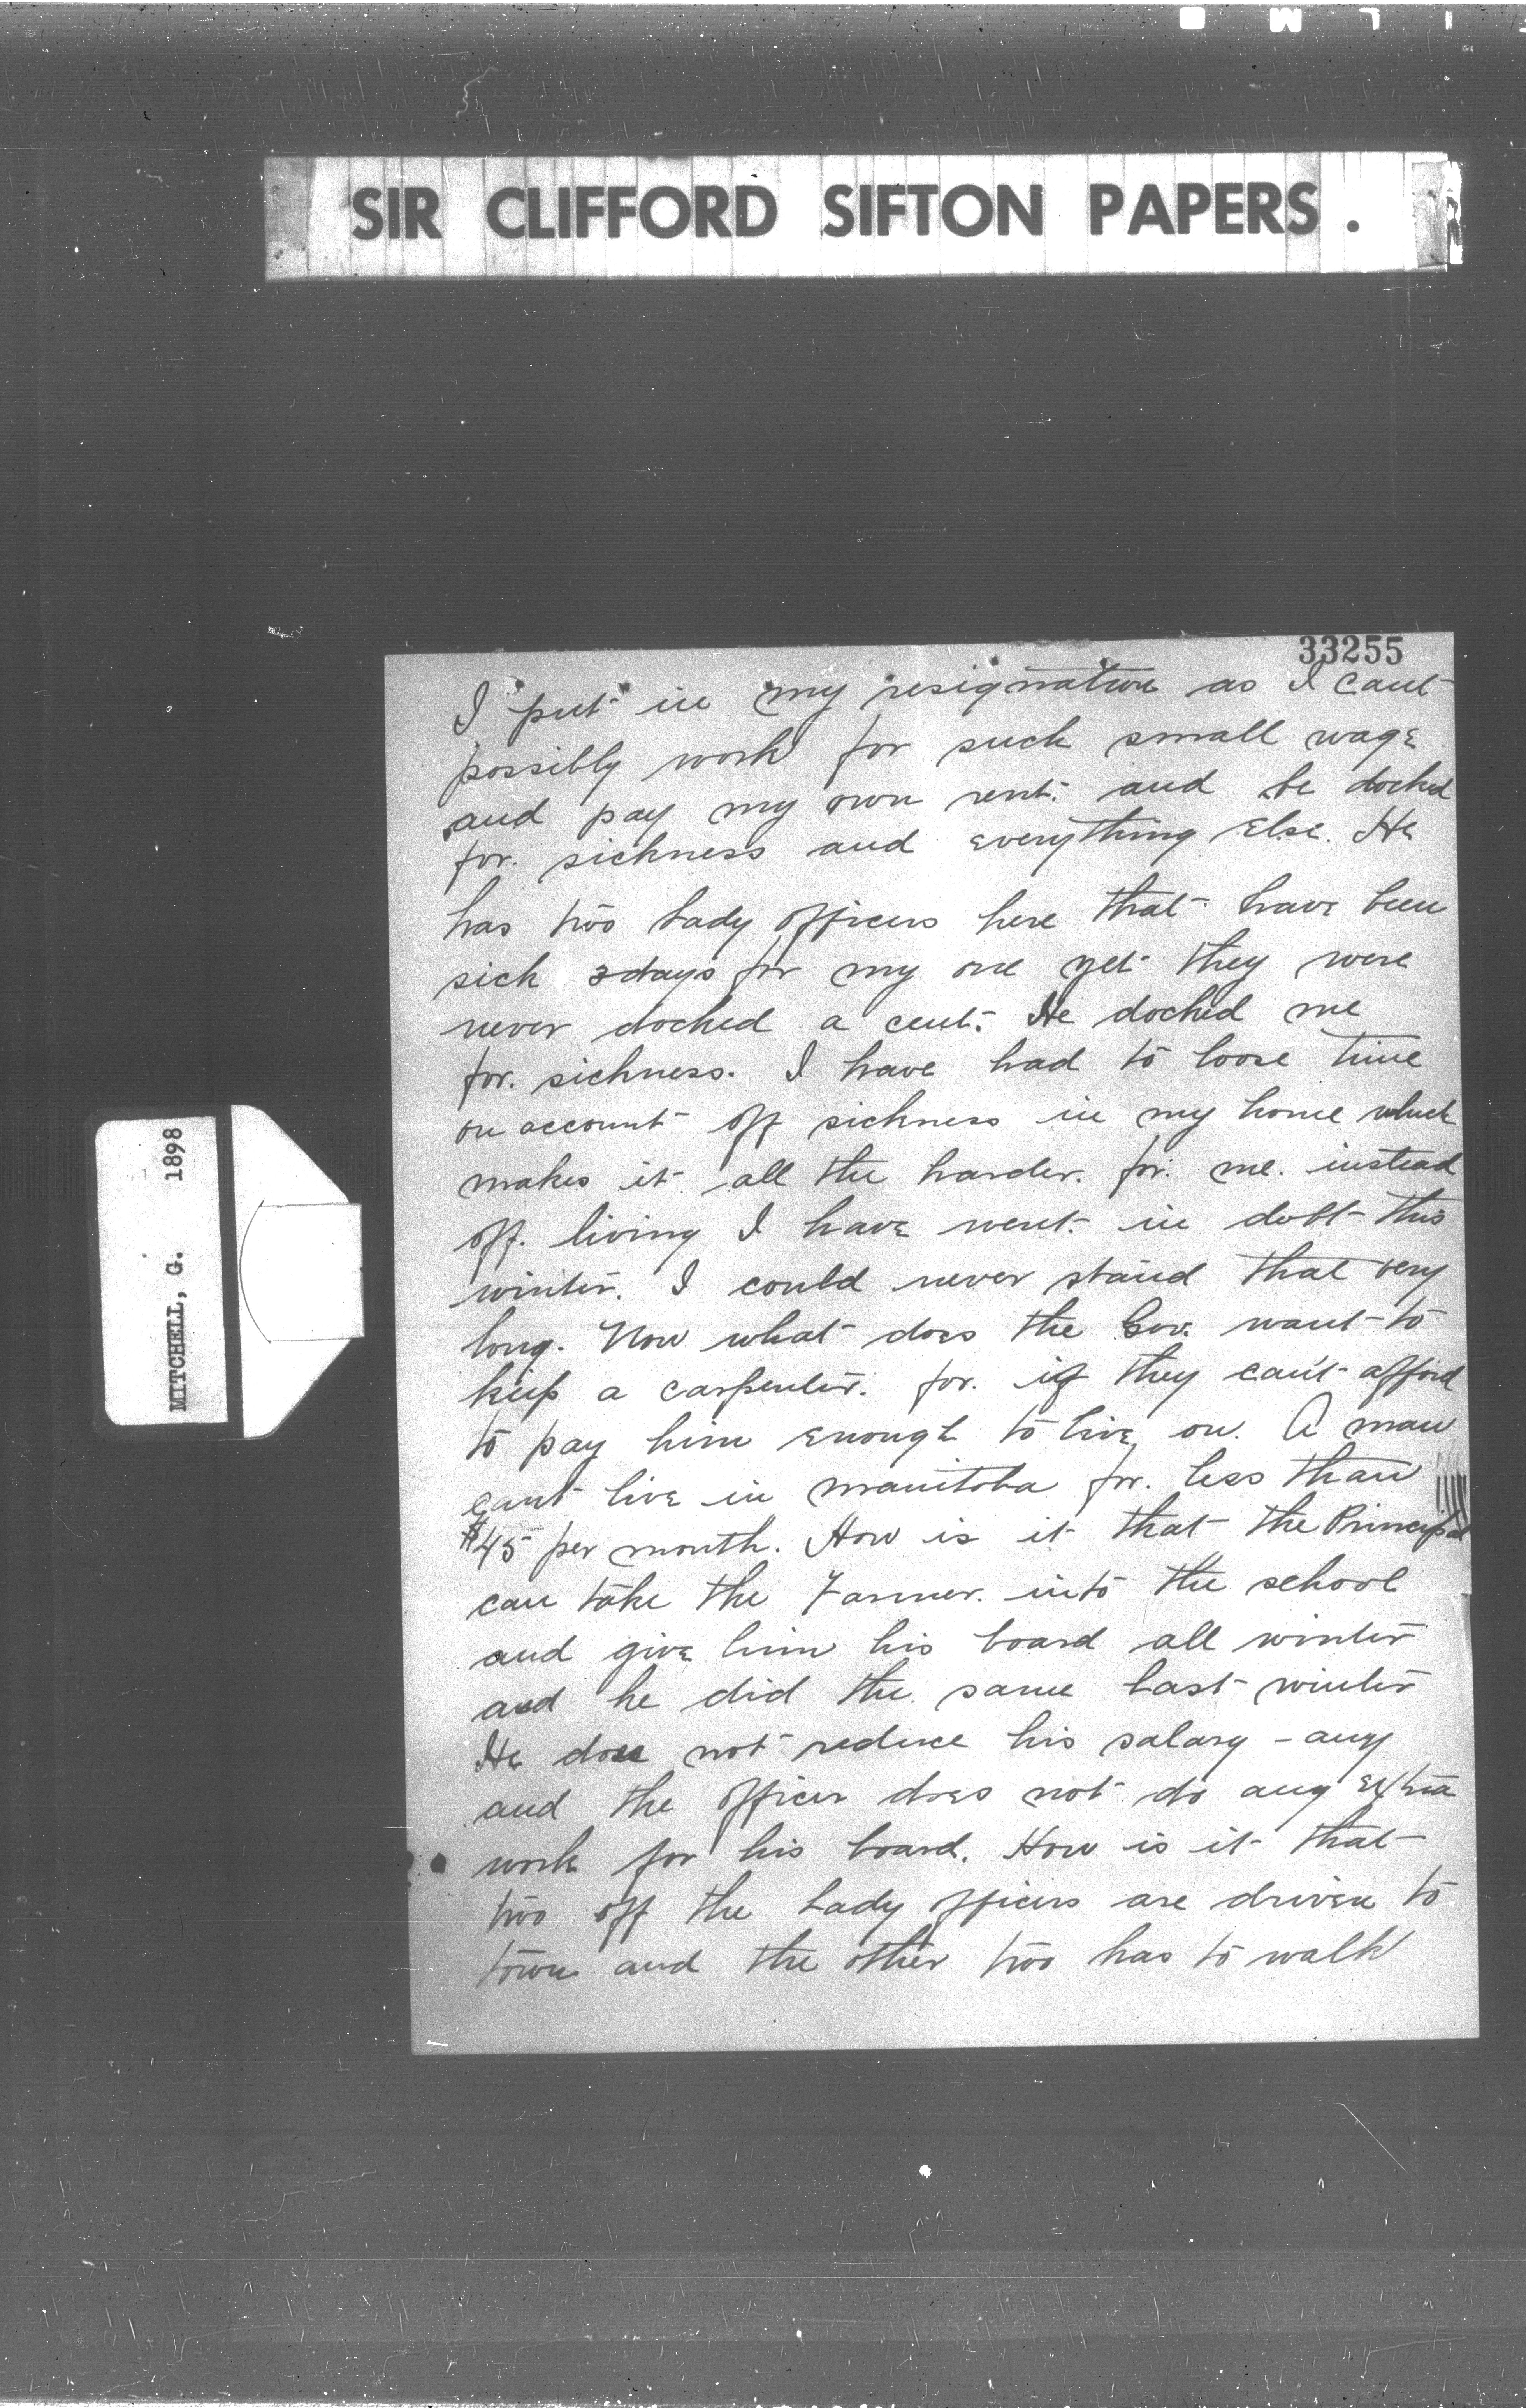 SIR CLIFFORD SIFTON PAPERS.
MITCHELL, G. 1898
33255
I put in my resignation as I cant
possibly work for such small wage
and pay my own rent. and be docked
for. sickness and everything else. He
has two Lady officers here that have been
sick 3 days for my one yet they were
never docked a cent. He docked me
for. sickness. I have had to loose time
on account off sickness in my home which
makes it all the harder. for. me. instead
off. living I have went. in debt this
winter. I could never stand that very
long. Now what does the Gov. want to
keep a carpenter. for. if they can't afford
to pay him enough to live on. A man
cant live in manitoba for. less than
$45 per month. How is it that the Principal
can take the Farmer. into the school
and give him his board all winter
and he did the same last winter
He does not reduce his salary - any
and the officer does not do any extra
work for his board. How is it that
two off the Lady officers are driven to
town and the other two has to walk